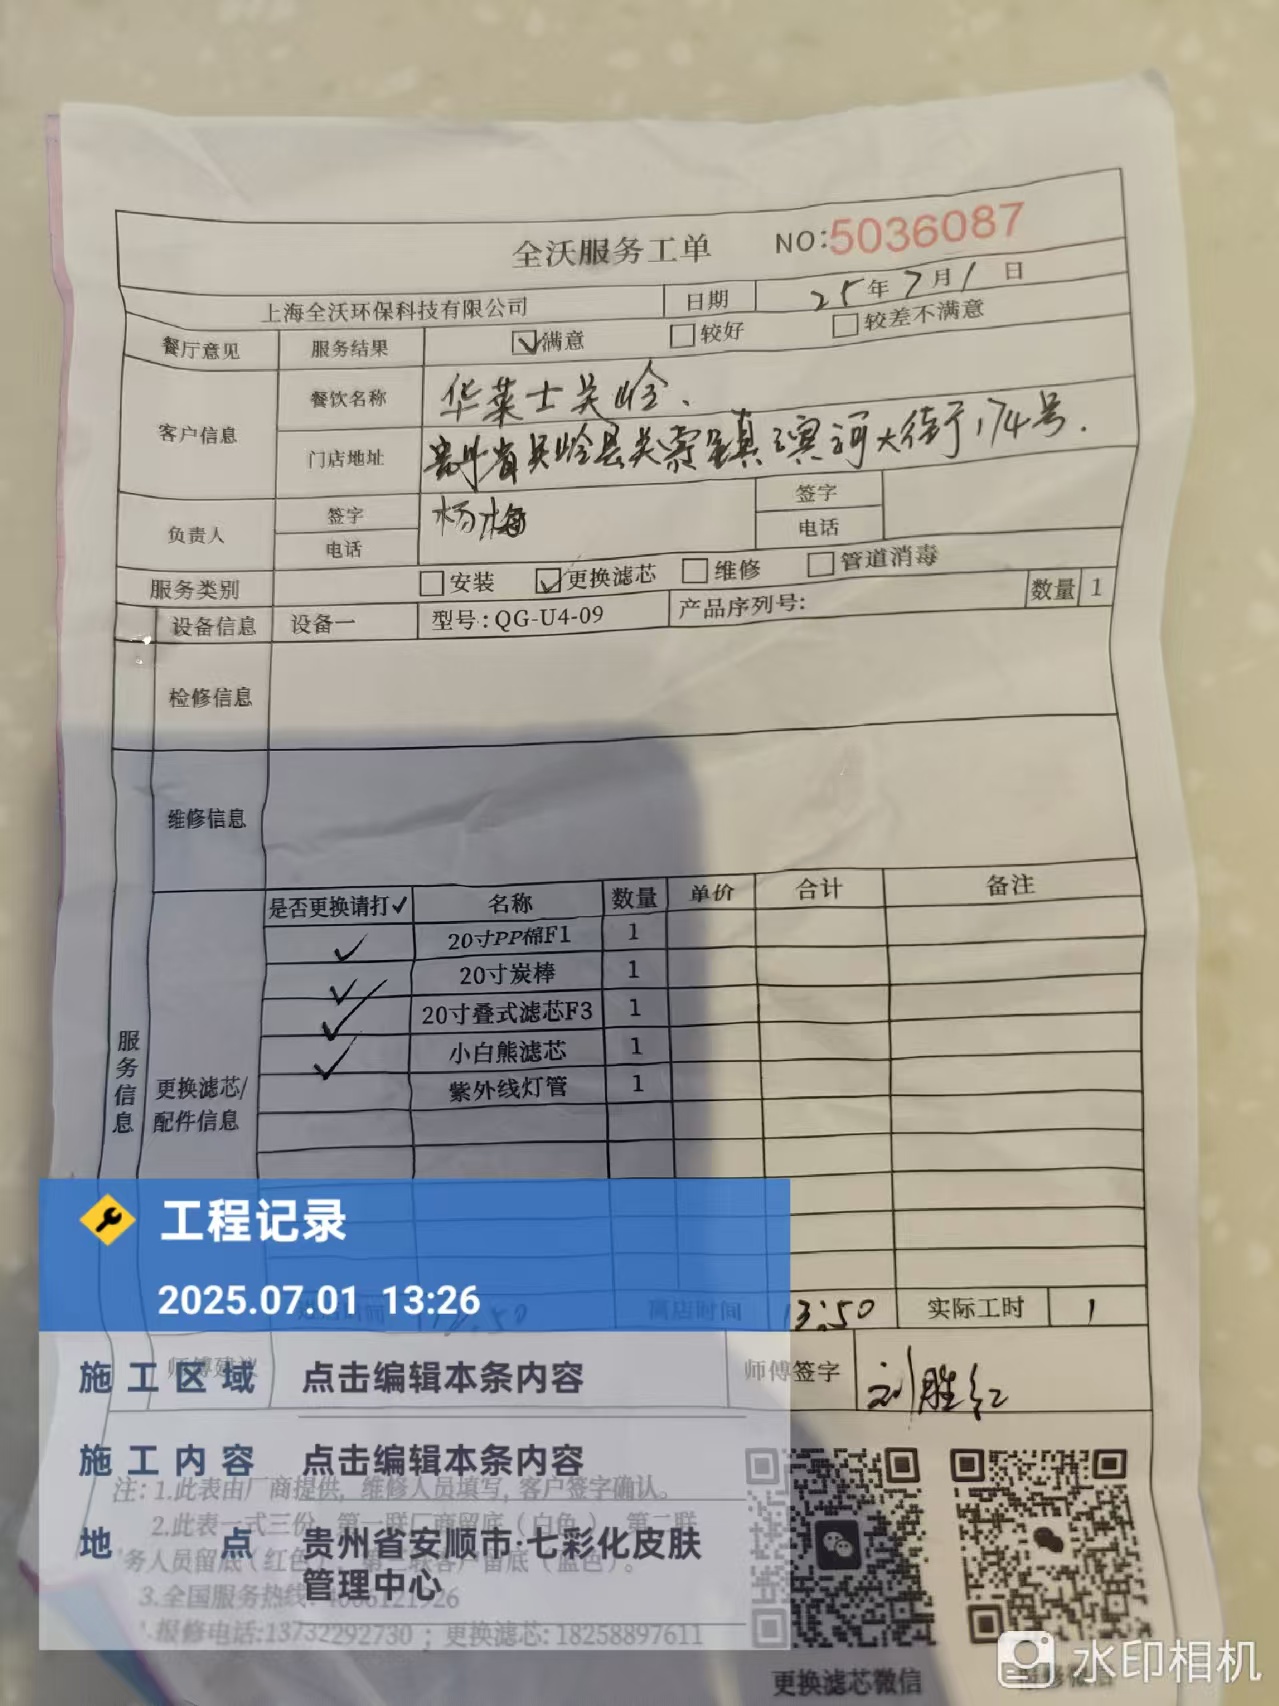 全沃服务工单 NO:5036087
上海全沃环保科技有限公司 日期 25年7月1日
餐厅意见 服务结果 ☑满意 □较好 □较差不满意
客户信息 餐饮名称 华莱士关岭.
门店地址 贵州省关岭县关索镇滨河大街174号.
负责人 签字 杨梅 签字
电话 电话
服务类别 □安装 ☑更换滤芯 □维修 □管道消毒
设备信息 设备一 型号:QG-U4-09 产品序列号: 数量 1
检修信息
维修信息
服务信息
更换滤芯/
配件信息
是否更换请打✓ 名称 数量 单价 合计 备注
✓ 20寸PP棉F1 1
✓ 20寸炭棒 1
✓ 20寸叠式滤芯F3 1
✓ 小白熊滤芯 1
紫外线灯管 1
工程记录
2025.07.01 13:26
时间 12:50 离店时间 13:50 实际工时 1
师傅建议 师傅签字 刘胜红
施工区域 点击编辑本条内容
施工内容 点击编辑本条内容
地点 贵州省安顺市·七彩化皮肤
管理中心
注:1.此表由厂商提供,维修人员填写,客户签字确认。
2.此表一式三份,第一联厂商留底(白色),第二联
务人员留底(红色),第三联客户留底(蓝色)。
3.全国服务热线:4006121926
报修电话:13732292730;更换滤芯:18258897611
更换滤芯微信
水印相机